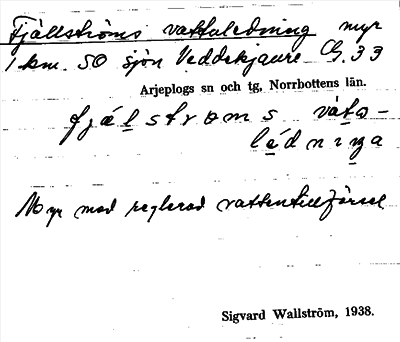 Fjällströms vattuledning myr
1 km. SO sjön Veddekjaure G. 33
Arjeplogs sn och tg, Norrbottens län.
fjälströms våta-
lédninga
Myr med reglerad vattentillförsel
Sigvard Wallström, 1938.